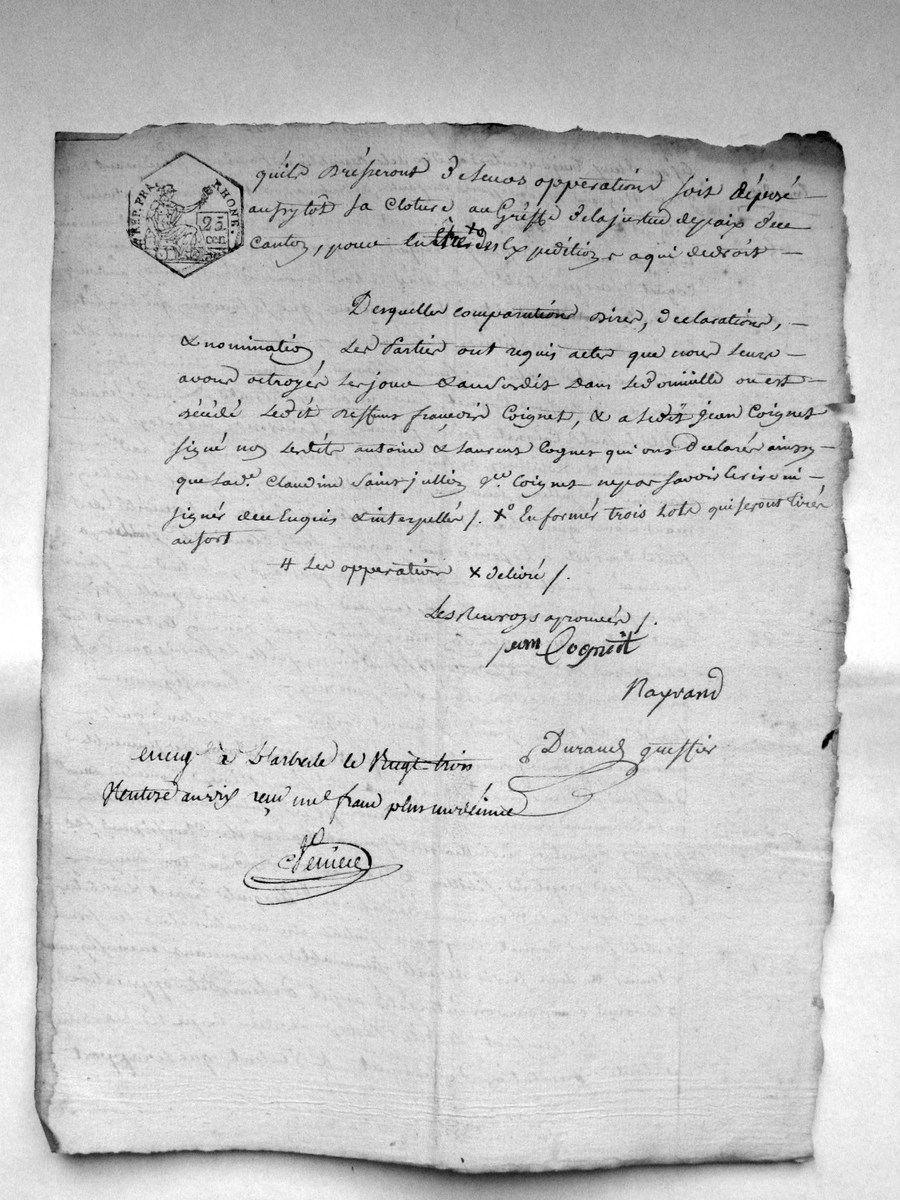 RÉP. FRA. RHONE.
25 cen
quils dresseront de leurs opperations soit déposé
aussytot sa cloture au Greffe de la justice de paix de ce
canton, pour en être des Expeditions a qui de droit
Desquelles comparutions dires, declarations,
& nomination, les Parties ont requis actes que nous leurs
avons octroyés les jour & an susdits dans le domicille ou est
décédé ledit deffunt françois Coignet, & a ledit jean Coignet
signé non lesdits antoine & Laurent Cognet qui ont declarés ainssy
que lad.e Claudine Saint jullien v.ve Coignet ne pas savoir lire ni
signés de ce Enquis & interpellés /. X° En formés trois lots qui seront tirés
au sort
# Les opperations X delivré /.
Les Renvoys aprouvés /.
jean Cogniet
Raynand
Durand greffier
enreg. à L'arbresle le Vingt-trois
Ventose an dix reçu un franc plus un décime